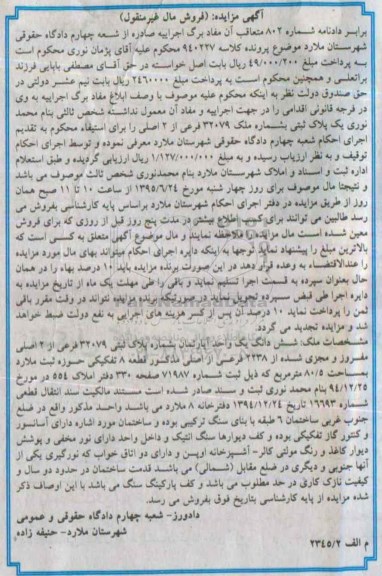 آگهی مزایده: (فروش مال غیرمنقول)
برابر دادنامه شماره ۸۰۲ متعاقب آن مفاد برگ اجراییه صادره از شعبه چهارم دادگاه حقوقی
شهرستان ملارد موضوع پرونده کلاسه ۹۴۰۲۲۷ محکوم علیه آقای پژمان نوری محکوم است
به پرداخت مبلغ ۴۹/۰۰۰/۲۰۰ ریال بابت اصل خواسته در حق آقای مصطفی بابایی فرزند
براتعلی و همچنین محکوم است به پرداخت مبلغ ۲۴۶۰۰۰۰ ریال بابت نیم عشر دولتی در
حق صندوق دولت نظر به اینکه محکوم علیه موصوف با وصف ابلاغ مفاد برگ اجراییه به وی
در فرجه قانونی اقدامی را در جهت اجراییه و مفاد آن معمول نداشته شخص ثالثی بنام محمد
نوری یک پلاک ثبتی بشماره ملک ۳۲۰۷۹ فرعی از ۲ اصلی را برای استیفاء محکوم به تقدیم
اجرای احکام شعبه چهارم دادگاه حقوقی شهرستان ملارد معرفی نموده و توسط اجرای احکام
توقیف و به نظر ارزیاب رسیده و به مبلغ ۱/۱۲۷/۰۰۰/۰۰۰ ریال ارزیابی گردیده و طبق استعلام
اداره ثبت و اسناد و املاک شهرستان ملارد بنام محمدنوری شخص ثالث موصوف می باشد
و نتیجتا مال موصوف برای روز چهار شنبه مورخ ۱۳۹۵/۶/۲۴ از ساعت ۱۰ تا ۱۱ صبح همان
روز از طریق مزایده در دفتر اجرای احکام شهرستان ملارد براساس پایه کارشناسی بفروش می
رسد طالبین می توانند برای کسب اطلاع بیشتر در مدت پنج روز قبل از روزی که برای فروش
معین شده است مال مزایده را ملاحظه نمایند و مال موضوع آگهی متعلق به کسی است که
بالاترین مبلغ را پیشنهاد نماید توجها به اینکه دایره اجرای احکام میتواند بهای مال مورد مزایده
را عندالاقتضاء به وعده قرار دهد در این صورت برنده مزایده باید ۱۰ درصد بهاء را در همان
حال بعنوان سپرده به قسمت اجرا تسلیم نماید و باقی را طی مهلت یک ماه از تاریخ مزایده به
دایره اجرا طی فیش سپرده تحویل نماید در صورتیکه برنده مزایده نتواند در وقت مقرر باقی
ثمن را پرداخت نماید ۱۰ درصد آن پس از کسر هزینه های اجرایی به نفع دولت ضبط خواهد
شد و مزایده تجدید می گردد.
مشخصات ملک: شش دانگ یک واحد آپارتمان بشماره پلاک ثبتی ۳۲۰۷۹ فرعی از ۲ اصلی
مفروز و مجزی شده از ۲۲۳۸ فرعی از اصلی مذکور قطعه ۸ تفکیکی حوزه ثبت ملارد
بمساحت ۸۰/۵ مترمربع که ذیل ثبت شماره ۷۱۹۸۷ صفحه ۳۳۰ دفتر املاک ۵۵۴ در مورخ
۹۴/۱۲/۲۵ بنام محمد نوری ثبت و سند صادر شده است مستند مالکیت سند انتقال قطعی
شماره ۱۶۶۹۳ تاریخ ۱۳۹۴/۱۲/۲۴ دفترخانه ۸ ملارد می باشد واحد مذکور واقع در ضلع
جنوب غربی ساختمان ۶ طبقه با بنای سنگ ترکیبی بوده و ساختمان مورد اشاره دارای آسانسور
و کنتور گاز تفکیکی بوده و کف دیوارها سنگ انتیک و داخل واحد دارای نور مخفی و پوشش
دیوار کاغذ و رنگ مولتی کالر- آشپزخانه اوپسن و دارای دو اتاق خواب که نورگیری یکی از
آنها جنوبی و دیگری در ضلع مقابل (شمالی) می باشد قدمت ساختمان در حدود دو سال و
کیفیت نازک کاری در حد مطلوب می باشد و کف پارکینگ سنگ می باشد با این اوصاف ذکر
شده مزایده از پایه کارشناسی بتاریخ فوق بفروش می رسد.
دادورز- شعبه چهارم دادگاه حقوقی و عمومی
شهرستان ملارد- حنیفه زاده
م الف ۲۳۴۵/۲